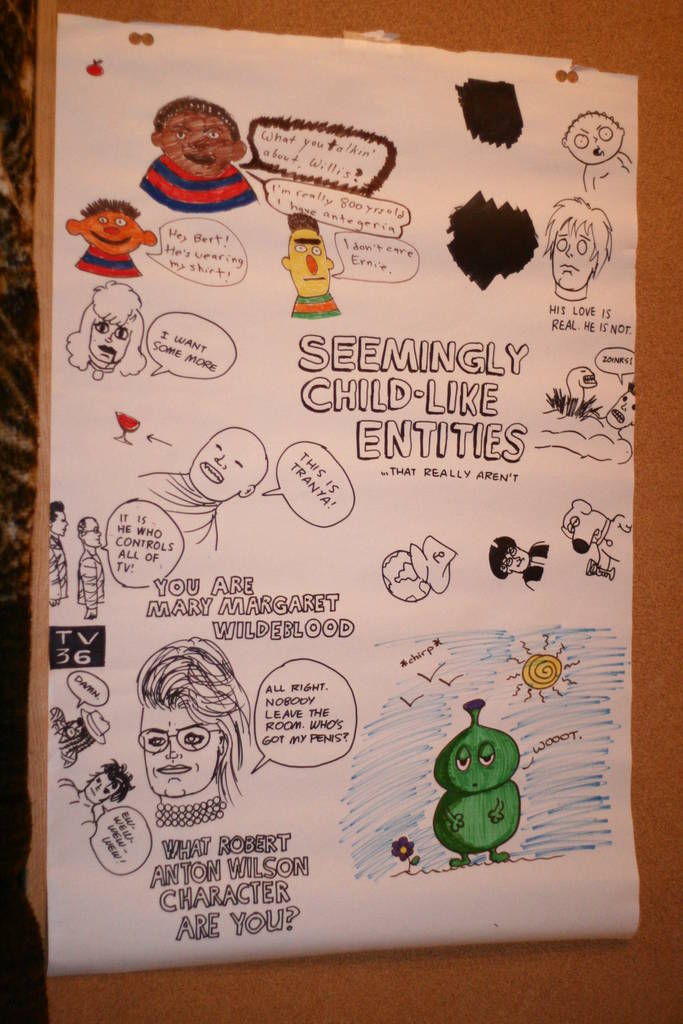 What you talkin'
about, Willis?
I'm really 800 yrs old
I have antegeria
Hey Bert!
He's wearing
my shirt!
I don't care
Ernie.
HIS LOVE IS
REAL. HE IS NOT.
I WANT
SOME MORE
SEEMINGLY
CHILD-LIKE
ENTITIES
...THAT REALLY AREN'T
ZOINKS!
THIS IS
TRANYA!
IT IS
HE WHO
CONTROLS
ALL OF
TV!
YOU ARE
MARY MARGARET
WILDEBLOOD
TV
36
DAMN.
ALL RIGHT.
NOBODY
LEAVE THE
ROOM. WHO'S
GOT MY PENIS?
EW-
WEW-
WEW-
WEW!
*chirp*
WOOOT.
WHAT ROBERT
ANTON WILSON
CHARACTER
ARE YOU?